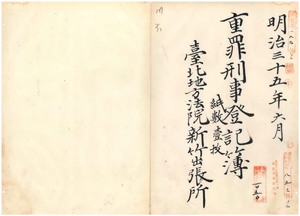 明治三十五年六月
重罪刑事登記簿
紙數壹枚
臺北地方法院新竹出張所